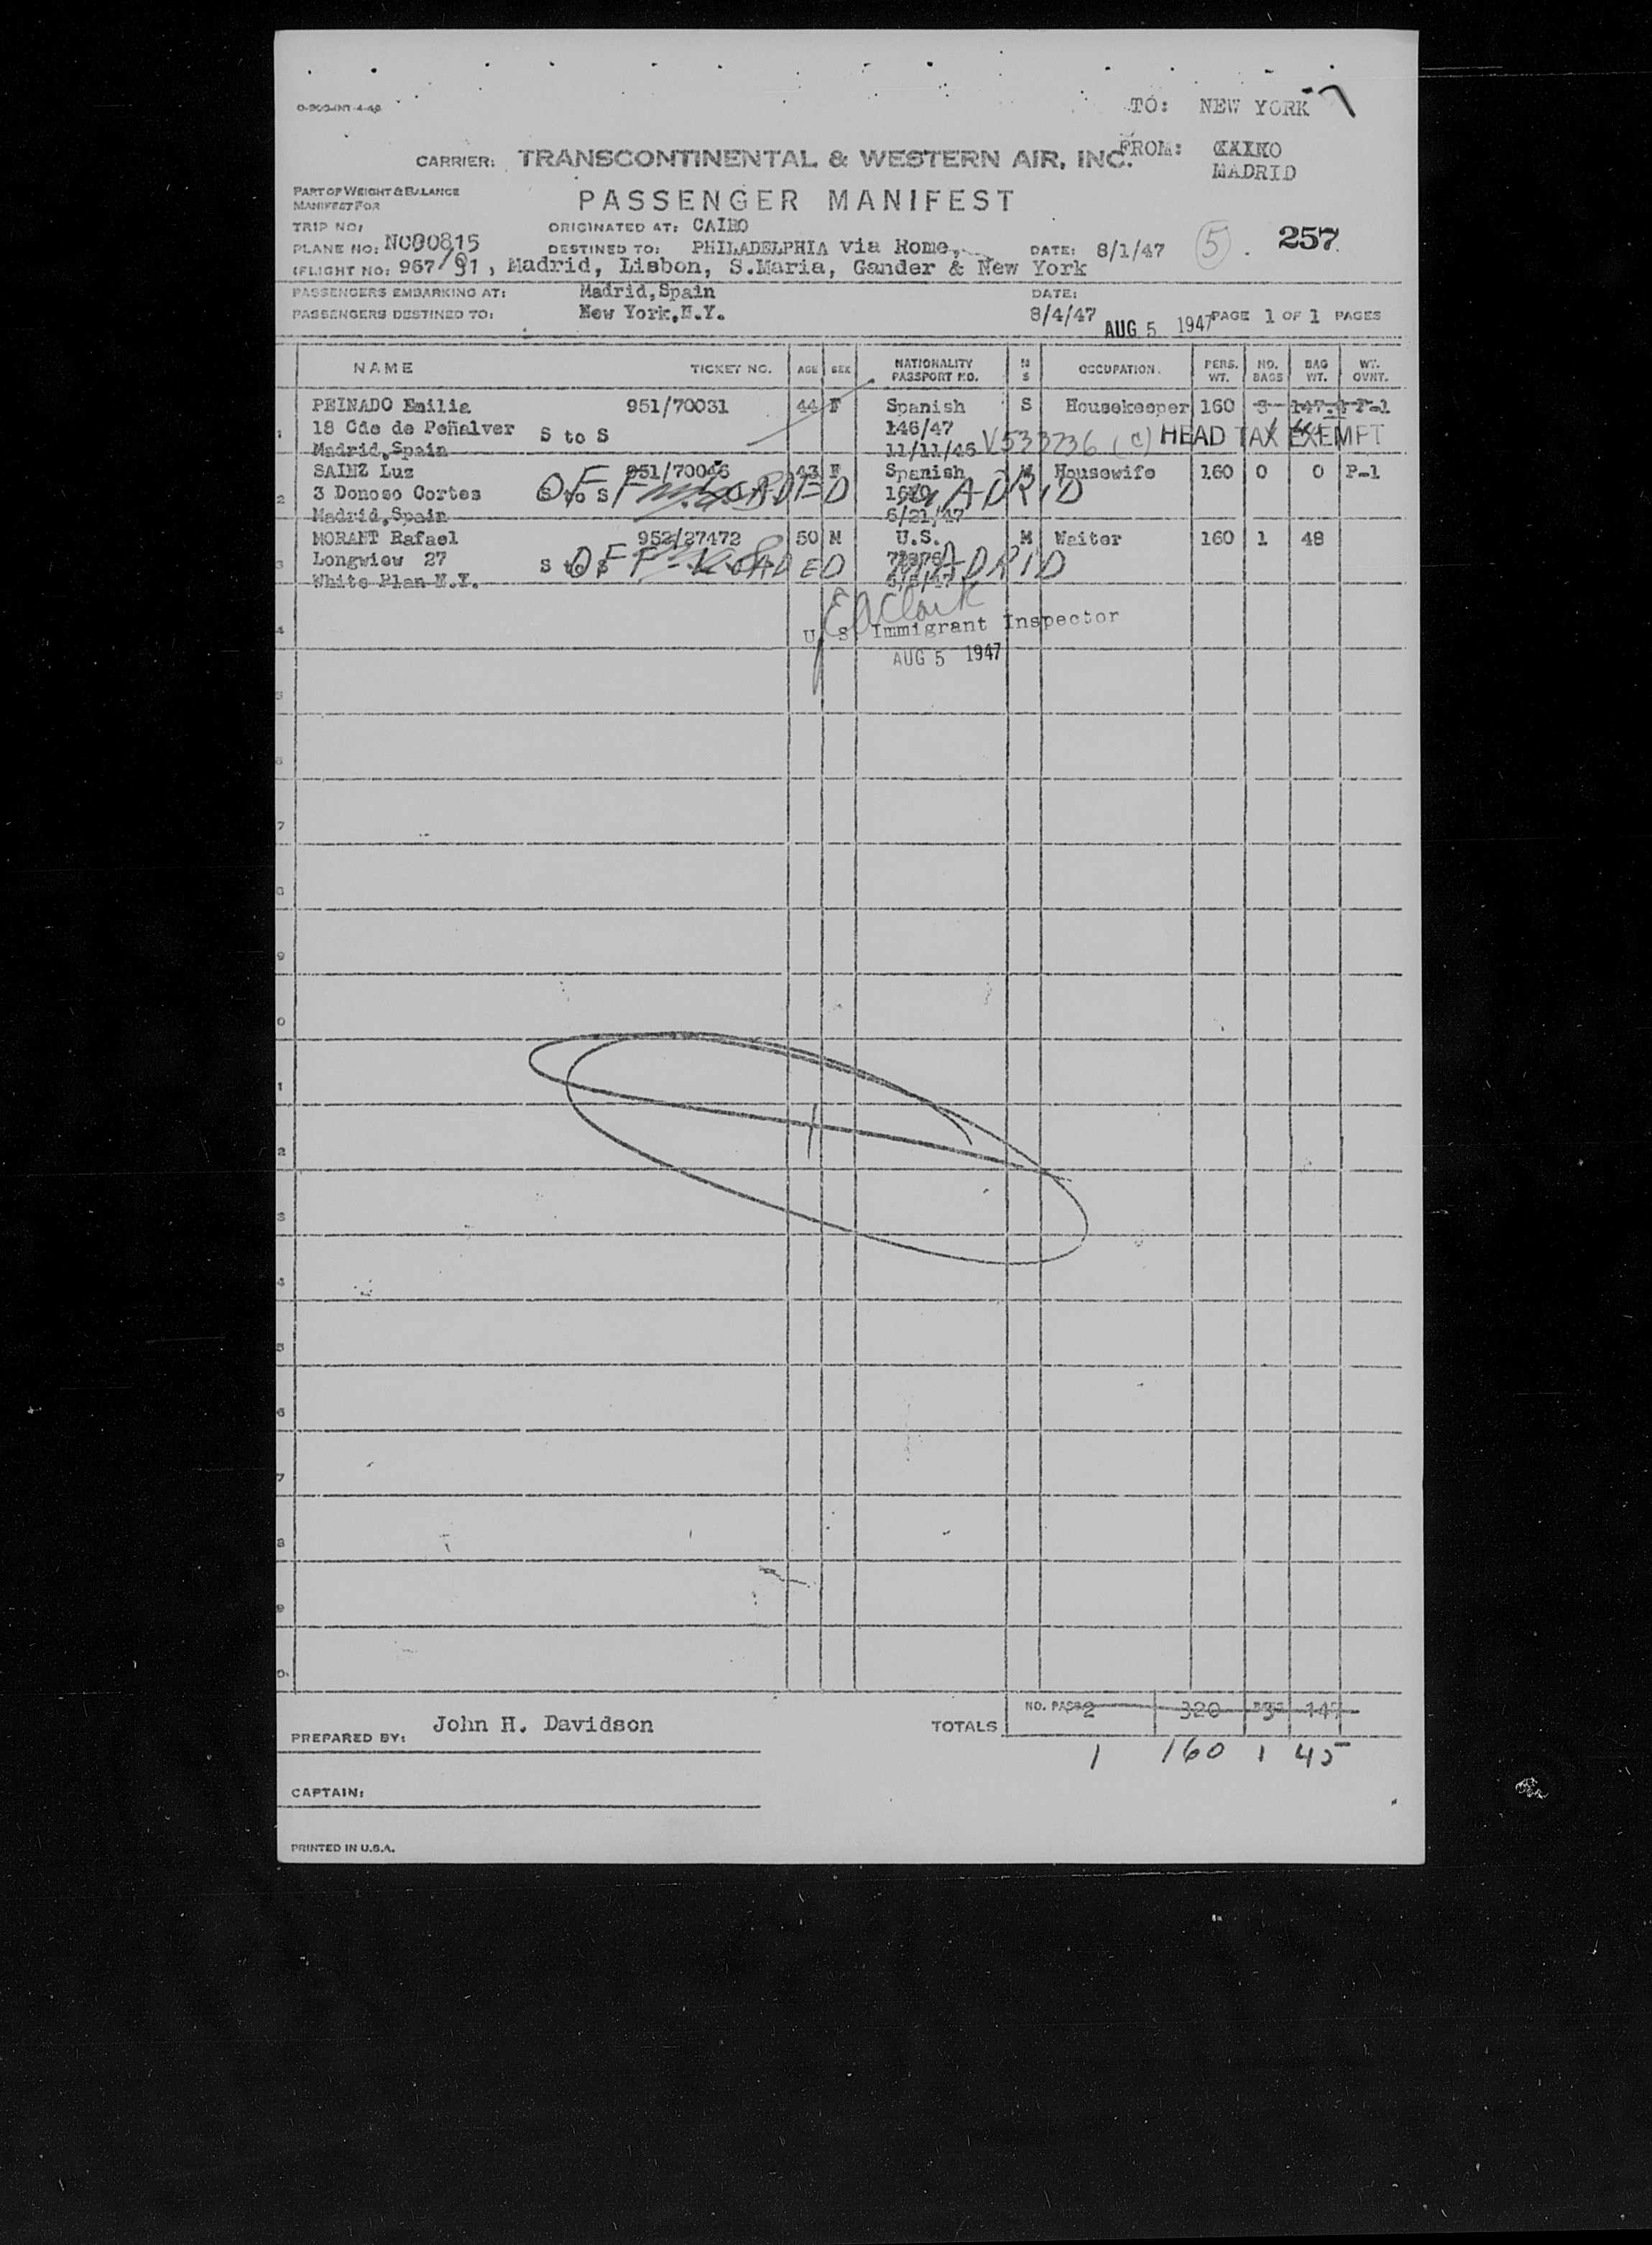 TO: NEW YORK
FROM: CAIRO
MADRID
CARRIER: TRANSCONTINENTAL & WESTERN AIR, INC.
PART OF WEIGHT & BALANCE
MANIFEST FOR
PASSENGER MANIFEST
TRIP NO:
ORIGINATED AT: CAIRO
PLANE NO: NC90815
DESTINED TO: PHILADELPHIA via Rome, DATE: 8/1/47 5 . 257
FLIGHT NO: 967/91, Madrid, Lisbon, S.Maria, Gander & New York
PASSENGERS EMBARKING AT: Madrid,Spain DATE:
PASSENGERS DESTINED TO: New York,N.Y. 8/4/47 AUG 5 1947 PAGE 1 OF 1 PAGES
NAME TICKET NO. AGE SEX NATIONALITY PASSPORT NO. M S OCCUPATION. PERS. WT. NO. BAGS BAG WT. WT. OVNT.
PEINADO Emilia 951/70031 44 F Spanish S Housekeeper 160 3 147. P-1
1 18 Cde de Peñalver S to S 146/47 V533736 (c) HEAD TAX EXEMPT
Madrid,Spain 11/11/46
SAINZ Luz 951/70046 43 F Spanish M Housewife 160 0 0 P-1
2 3 Donoso Cortes S to S OFF LOADED MADRID
Madrid,Spain 6/21/47
MORANT Rafael 952/27472 50 M U.S. M Waiter 160 1 48
3 Longwiew 27 S to S OFF-LOADED MADRID
White Plan N.Y.
E A Clark
4 U S Immigrant Inspector
AUG 5 1947
5
6
7
8
9
0
1
2
3
4
5
6
7
8
9
0
NO. PASS 2 320 3 147
PREPARED BY: John H. Davidson TOTALS
1 160 1 45
CAPTAIN:
PRINTED IN U.S.A.